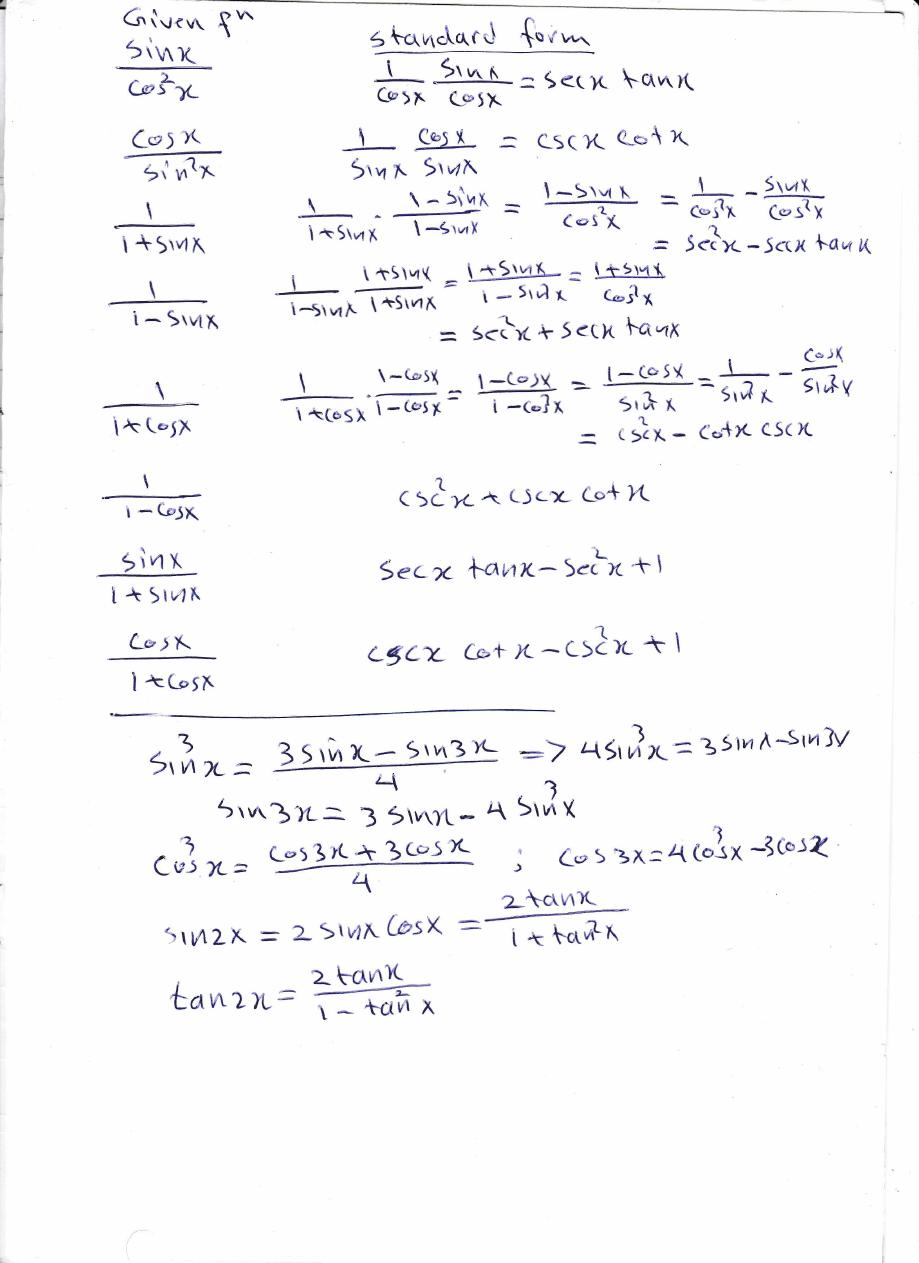 Given fn standard form
sinx/cos²x 1/cosx sinx/cosx = secx tanx
cosx/sin²x 1/sinx cosx/sinx = cscx cotx
1/1+sinx 1/1+sinx · 1-sinx/1-sinx = 1-sinx/cos²x = 1/cos²x - sinx/cos²x
= sec²x - secx tanx
1/1-sinx 1/1-sinx 1+sinx/1+sinx = 1+sinx/1-sin²x = 1+sinx/cos²x
= sec²x + secx tanx
1/1+cosx 1/1+cosx · 1-cosx/1-cosx = 1-cosx/1-cos²x = 1-cosx/sin²x = 1/sin²x - cosx/sin²x
= csc²x - cotx cscx
1/1-cosx csc²x + cscx cotx
sinx/1+sinx secx tanx - sec²x + 1
cosx/1+cosx cscx cotx - csc²x + 1
sin³x = 3sinx - sin3x/4 => 4sin³x = 3sinx-sin3x
sin3x = 3sinx - 4sin³x
cos³x = cos3x + 3cosx/4 ; cos3x=4cos³x-3cosx
sin2x = 2sinx cosx = 2tanx/1+tan²x
tan2x = 2tanx/1-tan²x